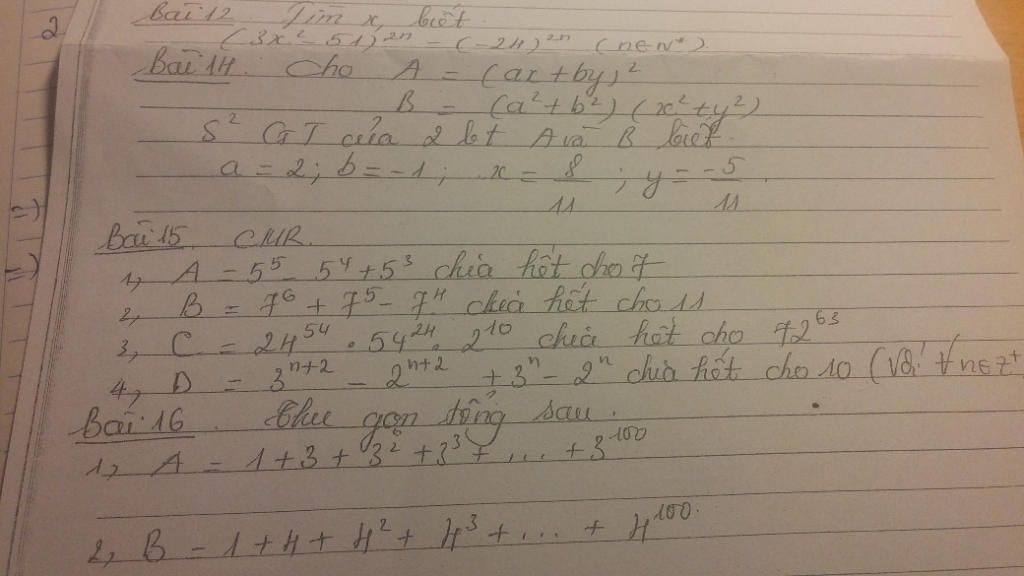 2
Bài 12 Tìm x, biết
(3x² - 51)²ⁿ = (-24)²ⁿ (n∈N*).
Bài 14. Cho A = (ax+by)²
B = (a²+b²) (x²+y²)
S² GT của 2 bt A và B biết.
a = 2; b = -1; x = 8/11; y = -5/11.
Bài 15. CMR.
1, A = 5⁵ - 5⁴ + 5³ chia hết cho 7
2, B = 7⁶ + 7⁵ - 7⁴ chia hết cho 11
3, C = 24⁵⁴ . 54²⁴ . 2¹⁰ chia hết cho 72⁶³
4, D = 3ⁿ⁺² - 2ⁿ⁺² + 3ⁿ - 2ⁿ chia hết cho 10 (Với ∀n∈Z⁺
Bài 16. Thu gọn tổng sau.
1, A = 1 + 3 + 3² + 3³ + ... + 3¹⁰⁰
2, B = 1 + 4 + 4² + 4³ + ... + 4¹⁰⁰.